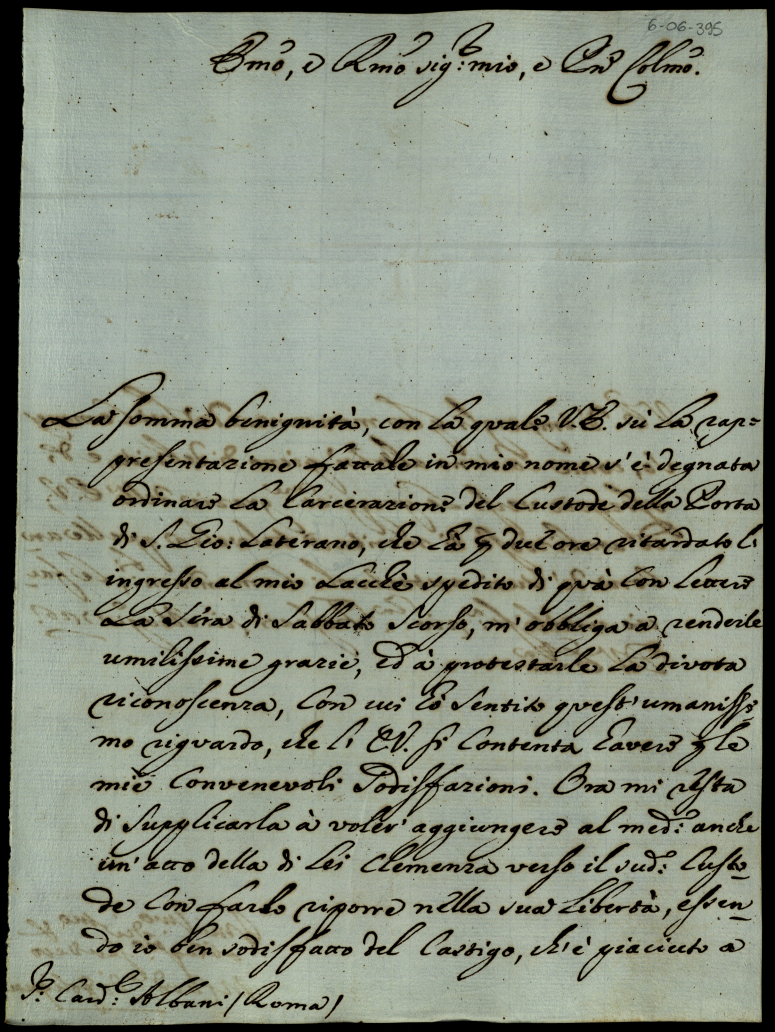 6-06-395
Emo, e Rmo Sig.r mio, e Pne Colmo.
La somma benignità, con la quale V.E. sù la rap=
presentazione fattale in mio nome s'è degnata
ordinare la Carcerazione del Custode della Porta
di S. Gio: Laterano, che hà p due ore ritardato l'
ingresso al mio Lacchè spedito di quà con lettere
La sera di Sabbato scorso, m'obbliga a renderle
umilissime grazie, ed à protestarle la divota
riconoscenza, con cui hò sentito quest'umaniss=
mo riguardo, che l'E.V. si contenta havere p le
mie Convenevoli Sodisfazioni. Ora mi resta
di Supplicarla à voler aggiungere al med.o anche
un'atto della di Lei Clemenza verso il sud.o Custo=
de con farlo riporre nella sua libertà, essen=
do io ben sodisfatto del Castigo, ch'è piaciuto a
S.r Card.l Albani (Roma)